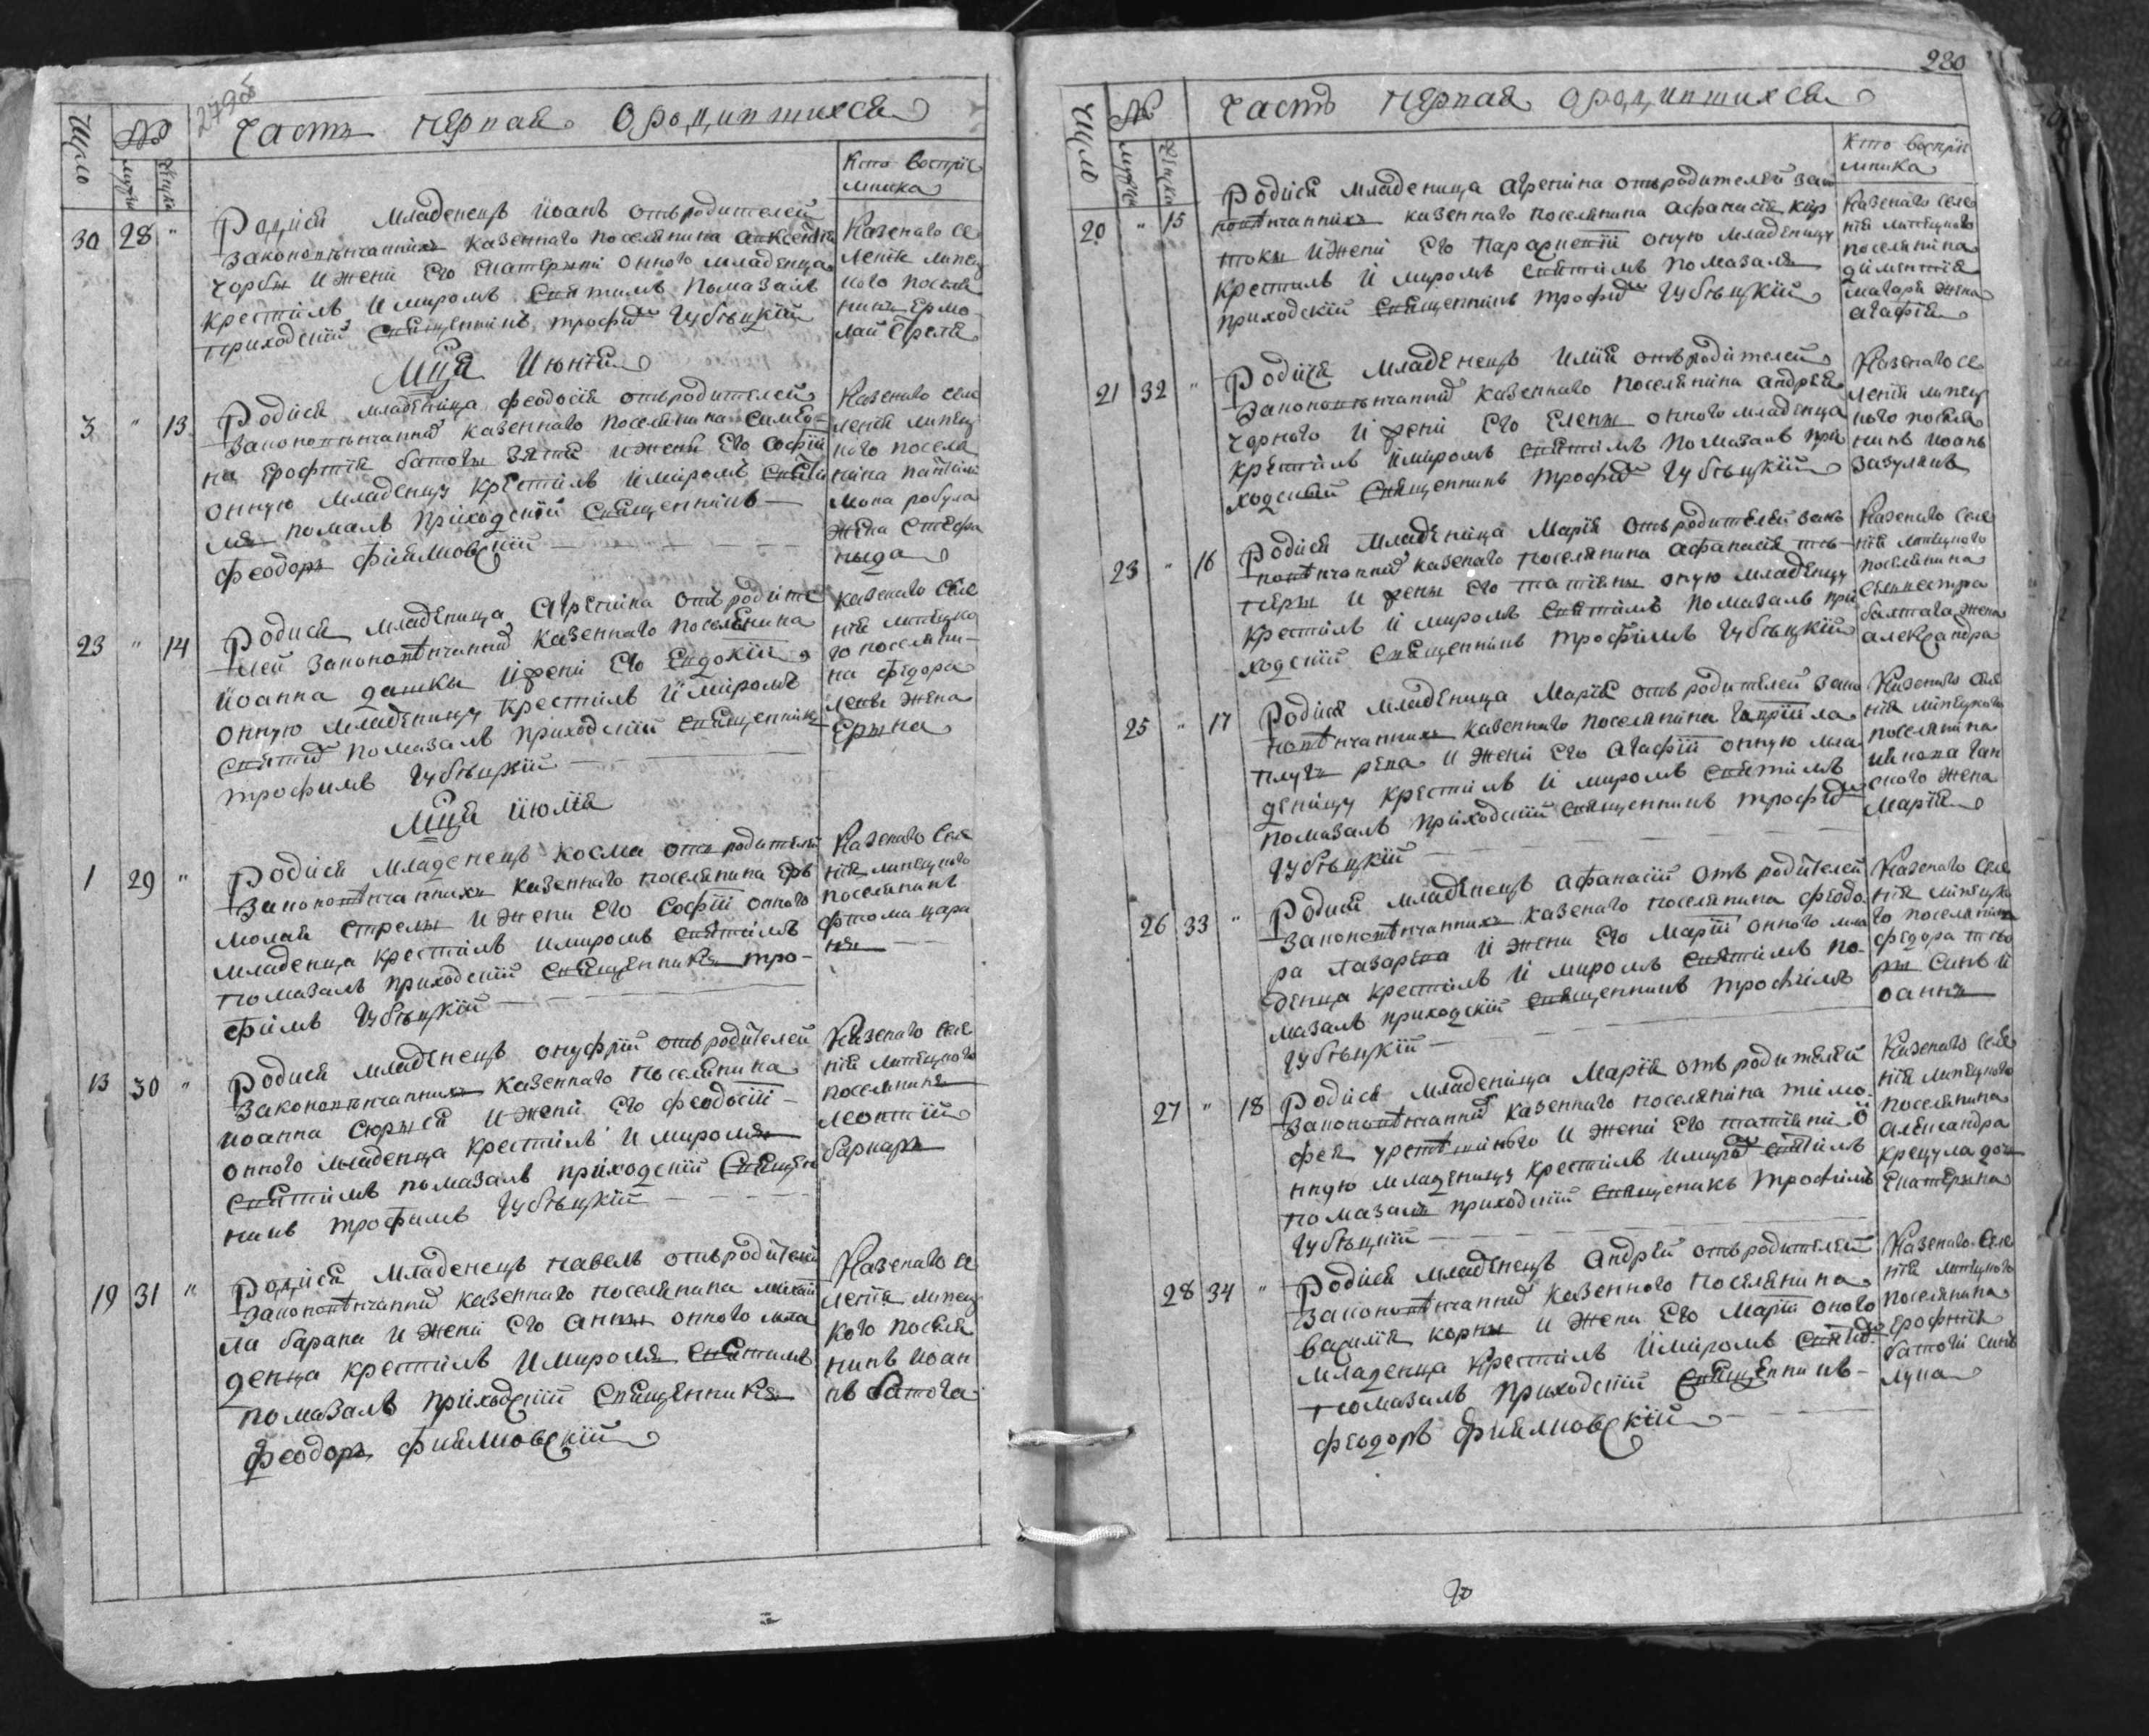 279об
Часть первая о родившихся
Число
№
мужска
женска
Кто воспріе
мника
30 28 "
Родися младенецъ Іоанъ отъ родителей
законовѣнчанныхъ казеннаго поселянина Авксентія
Чорбы и жены его Екатерины онного младенца
крестилъ и миромъ святимъ помазалъ
приходскій священникъ трофим Чубѣцкій
Казенаго се
ленія липец
кого поселя
нинъ Ермо
лай Стреля
Мця Июнія
3 " 13
Родися младеница феодосія отъ родителей
законовѣнчанных казеннаго поселянина Симео-
на Ерофтія батоги зятя и жены его Софіи
онную младеницу крестилъ и миромъ святи
мъ помалъ приходскій священникъ
феодоръ фиялковскій
Казенаго селе
ленія липец
кого поселя
нина
мона робула
жена Стефа
нида
23 " 14
Родися младеница Агрепина отъ родите
лей законовѣнчанных казеннаго поселянина
Іоанна дашки и жени его Евдокіи
онную младеницу крестилъ и миромъ
святим помазалъ приходскій священникъ
трофимъ Чубѣцкій
казенаго селе
нія липецко
го поселяни-
на федора
жена
Ерина
Мця Июлія
1 29 "
Родися младенецъ Косма отъ родителей
законовѣнчаннихъ казеннаго поселянина Ер
молая Стрелы и жени его Софіи онного
младенца крестилъ и миромъ святимъ
помазалъ приходскій священникъ тро-
фимъ Чубѣцкій
Казенаго селе
нія липецкого
поселянинъ
фтома цара
нъ
13 30 "
Родися младенецъ онуфрій отъ родителей
законовѣнчанныхъ казеннаго поселянина
Іоанна Сюрися и жени его феодосіи
онного младенца крестилъ и миромъ
святимъ помазалъ приходскій священ
никъ трофимъ Чубѣцкій
Казенаго селе
нія липецкого
поселянинъ
леонтій
барнаръ
19 31 "
Родися младенецъ павелъ отъ родителей
законовѣнчанных казеннаго поселянина михаи
ла барана и жени его Анны онного мла
денца крестилъ и миромъ святимъ
помазалъ приходскій священникъ
феодоръ фиялковскій
Казенаго се
ленія липец
кого поселя
нинъ Іоан
нъ батога
280
Часть первая о родившихся
Число
№
мужска
женска
Кто воспріе
мника
20 " 15
Родися младеница агрепина отъ родителей зако
новѣнчаннихъ казеннаго поселянина афанасія кир
токи и жени его Параскевіи оную младеницу
крестилъ и миромъ святимъ помазалъ
приходскій священникъ трофим Чубѣцкій
Казенаго селе
нія липецкого
поселянина
диментія
магари жена
агафія
21 32 "
Родися младенецъ илия отъ родителей
законовѣнчанных казеннаго поселянина андрея
чорного и жени его Елены онного младенца
крестилъ и миромъ святимъ помазалъ при
ходский священникъ трофим Чубѣцкій
Казенаго се
ленія липец
кого поселя
нинъ Іоанъ
Зазулянъ
23 " 16
Родися младеница Марія отъ родителей зако
новѣнчанных казенаго поселянина афанасія
и жены его татіяны оную младеницу
крестилъ и миромъ святимъ помазалъ при
ходскій священникъ трофимъ Чубѣцкій
Казенаго селе
нія липецкого
поселянина
Силивестра
балтага жена
александра
25 " 17
Родися младеница Марія отъ родителей зако
новѣнчаннихъ казеннаго поселянина гавріила
и жени его Агафіи онную мла
деницу крестилъ и миромъ святимъ
помазалъ приходскій священникъ трофим
Чубѣцкій
Казенаго селе
нія липецкого
поселянина
ского жена
Марія
26 33 "
Родися младенецъ афанасій отъ родителей
законовѣнчаннихъ казенаго поселянина феодо
ра лазарена и жени его Маріи онного мла
денца крестилъ и миромъ святимъ по-
мазалъ приходскій священникъ трофимъ
Чубѣцкій
Казенаго селе
нія липецко
го поселянина
федора
ри синъ и
оаннъ
27 " 18
Родися младеница Марія отъ родителей
законовѣнчанных казеннаго поселянина тимо
фея и жени его татіяни о
нную младеницу крестилъ и миром святімъ
помазалъ приходскій священикъ трофимъ
Чубѣцкій
Казенаго селе
нія липецкого
поселянина
александра
крецула дочь
Екатерина
28 34 "
Родися младенецъ андрей отъ родителей
законовѣнчанных казенного поселянина
василія корны и жени его Маріи оного
младенца крестилъ и миромъ святим
помазалъ приходскій священникъ
феодоръ фиялковскій
Казенаго селе
нія липецкого
поселянина
Ерофтія
батоги синъ
лука